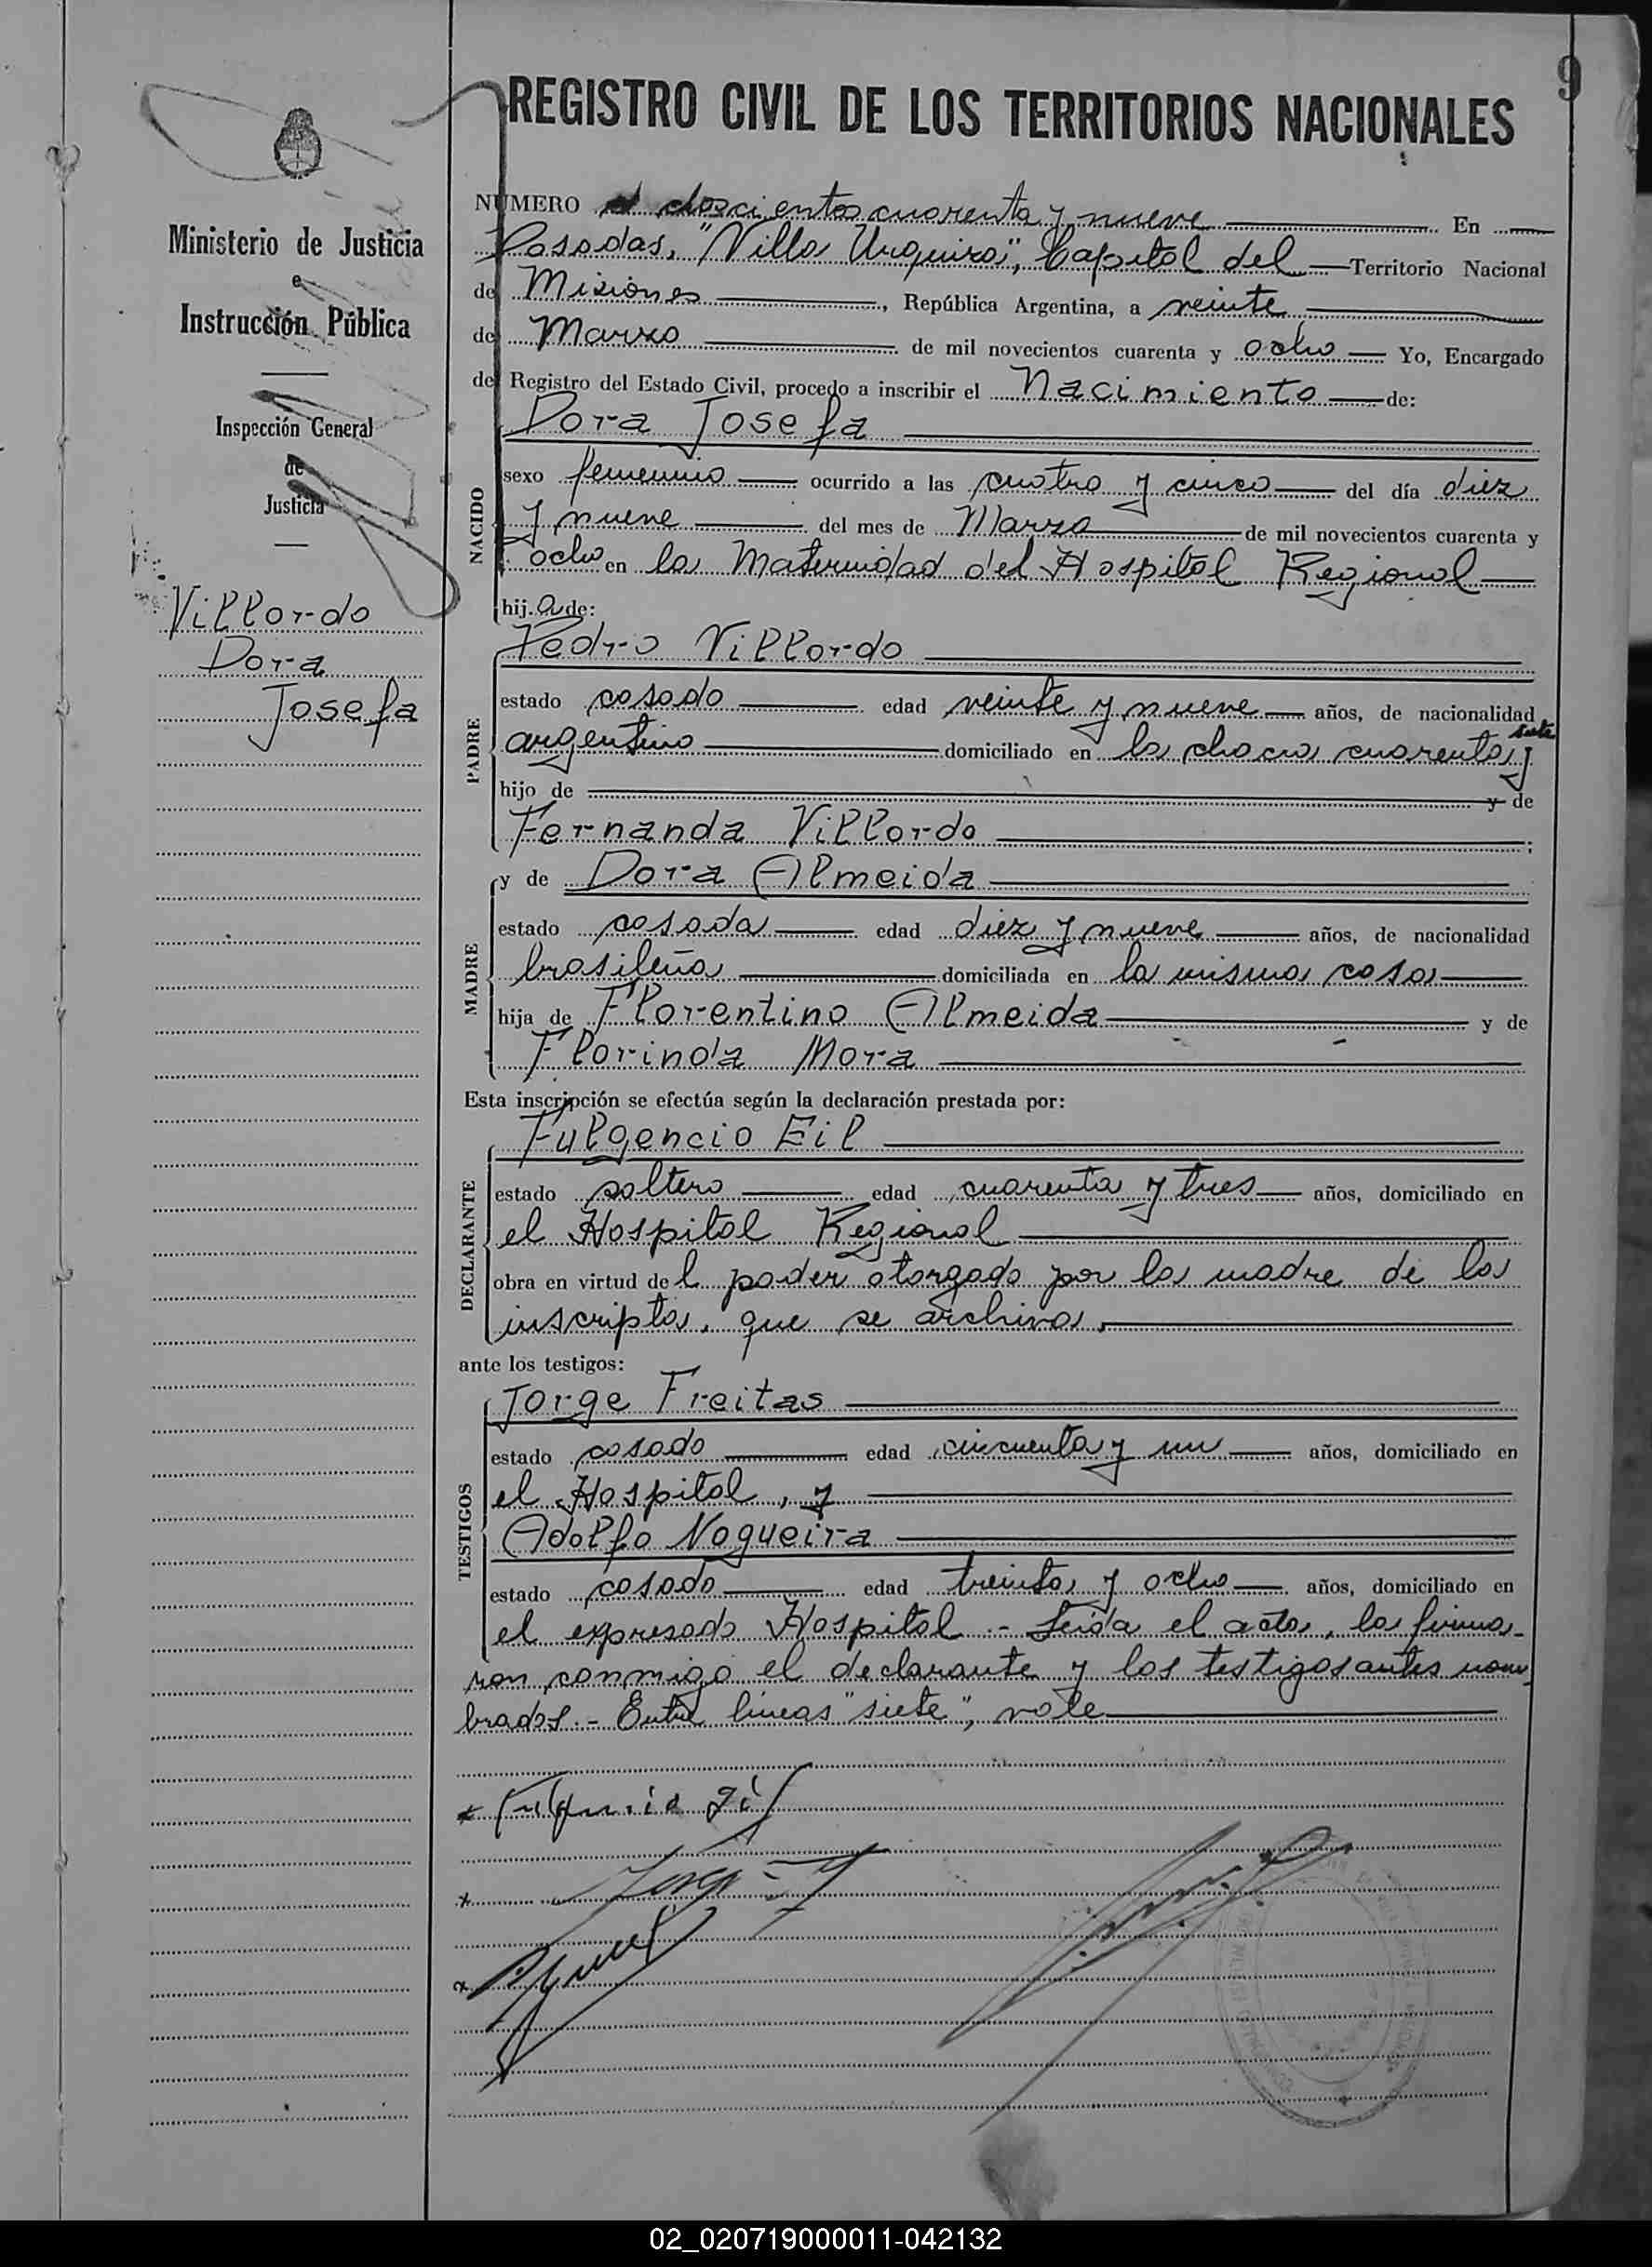 9
REGISTRO CIVIL DE LOS TERRITORIOS NACIONALES
Ministerio de Justicia
e
Instrucción Pública
Inspección General
de
Justicia
Villordo
Dora
Josefa
NUMERO doscientos cuarenta y nueve En
Posadas, "Villa Urquiza", Capital del Territorio Nacional
de Misiones, República Argentina, a veinte
de Marzo de mil novecientos cuarenta y ocho Yo, Encargado
del Registro del Estado Civil, procedo a inscribir el Nacimiento de:
NACIDO
Dora Josefa
sexo femenino ocurrido a las cuatro y cinco del día diez
y nueve del mes de Marzo de mil novecientos cuarenta y
ocho en la Maternidad del Hospital Regional
hij.a de:
PADRE
Pedro Villordo
estado casado edad veinte y nueve años, de nacionalidad
argentino domiciliado en la chacra cuarenta y siete
hijo de y de
Fernanda Villordo;
MADRE
y de Dora Almeida
estado casada edad diez y nueve años, de nacionalidad
brasileña domiciliada en la misma casa
hija de Florentino Almeida y de
Florinda Mora
Esta inscripción se efectúa según la declaración prestada por:
DECLARANTE
Fulgencio Eil
estado soltero edad cuarenta y tres años, domiciliado en
el Hospital Regional
obra en virtud del poder otorgado por la madre de la
inscripta, que se archiva.
ante los testigos:
TESTIGOS
Jorge Freitas
estado casado edad cincuenta y un años, domiciliado en
el Hospital, y
Adolfo Nogueira
estado casado edad treinta y ocho años, domiciliado en
el expresado Hospital - Leída el acta, la firma-
ron conmigo el declarante y los testigos antes nom
brados. - Entre líneas "siete", vale
Fulgencio Gil
02_020719000011-042132